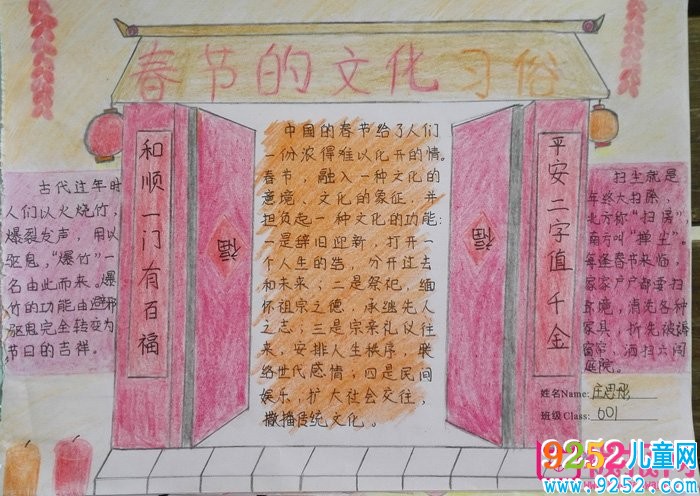 春节的文化习俗
和顺一门有百福
平安二字值千金
福
福
古代过年时
人们以火烧竹,
爆裂发声,用以
驱鬼,"爆竹"一
名由此而来。爆
竹的功能由避邪
驱鬼完全转变为
节日的吉祥。
中国的春节给了人们
一份浓得难以化开的情。
春节,融入一种文化的
意境、文化的象征,并
担负起一种文化的功能:
一是辞旧迎新,打开一
个人生的结,分开过去
和未来;二是祭祀,缅
怀祖宗之德,承继先人
之志;三是宗亲礼仪往
来,安排人生秩序,联
络世代感情;四是民间
娱乐,扩大社会交往,
撒播传统文化。
扫尘就是
年终大扫除,
北方称"扫房"
南方叫"掸尘"。
每逢春节来临,
家家户户都要扫
环境,清洗各种
家具,拆洗被褥
窗帘,洒扫六闾
庭院。
姓名Name:庄思彤
班级Class:601
9252儿童网
www.9252.com